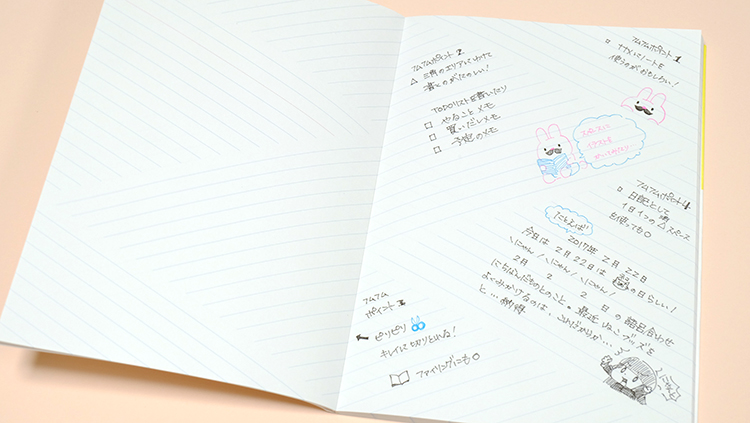 アムアムポイント1
ナナメにノートを
使うのがおもしろい!
アムアムポイント2
△三角のエリアにわけて
書くのがたのしい!
TODOリストを書いたり
□ やることメモ
□ 買いだしメモ
□ 予定のメモ
スペースに
イラストを
かいてみたり
アムアムポイント4
日記として
1日1つの△スペース
を使っても○
たとえば!
2017年 2月 22日
今日は 2月22日は の日らしい!
\にゃん/\にゃん/\にゃん/
2月 2 2 日 の語呂合わせ
にちなんだものとのこと。最近ねこグッズを
よくみかけるのは、これだからか…
と…納得
アムアム
ポイント3
ピリピリ
キレイに切りとれる!
ファイリングにも○